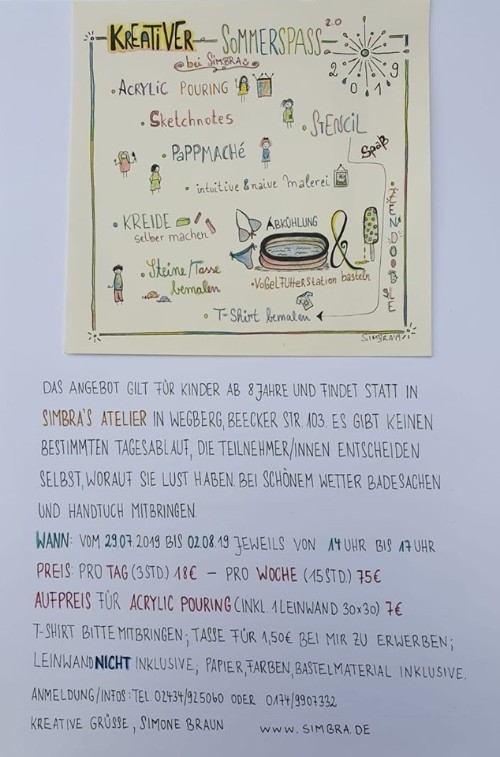 KREATIVER SOMMERSPASS 2.0
bei SIMBRAS
2019
• ACRYLIC POURING
• Sketchnotes
• STENCIL
Spaß
• PAPPMACHÉ
• intuitive & naive Malerei
• KREIDE
selber machen
ABKÜHLUNG
&
• Steine/Tasse
bemalen
• VOGELFUTTERSTATION basteln
• T-Shirt bemalen
SIMBRA/19
DAS ANGEBOT GILT FÜR KINDER AB 8 JAHRE UND FINDET STATT IN
SIMBRA'S ATELIER IN WEGBERG, BEECKER STR. 103. ES GIBT KEINEN
BESTIMMTEN TAGESABLAUF, DIE TEILNEHMER/INNEN ENTSCHEIDEN
SELBST, WORAUF SIE LUST HABEN. BEI SCHÖNEM WETTER BADESACHEN
UND HANDTUCH MITBRINGEN.
WANN: VOM 29.07.2019 BIS 02.08.19 JEWEILS VON 14 UHR BIS 17 UHR
PREIS: PRO TAG (3 STD.) 18€ – PRO WOCHE (15 STD.) 75€
AUFPREIS FÜR ACRYLIC POURING (INKL. 1 LEINWAND 30x30) 7€
T-SHIRT BITTE MITBRINGEN; TASSE FÜR 1,50€ BEI MIR ZU ERWERBEN;
LEINWAND NICHT INKLUSIVE; PAPIER, FARBEN, BASTELMATERIAL INKLUSIVE.
ANMELDUNG/INFOS: TEL. 02434/925060 ODER 0174/9907332
KREATIVE GRÜSSE, SIMONE BRAUN WWW.SIMBRA.DE